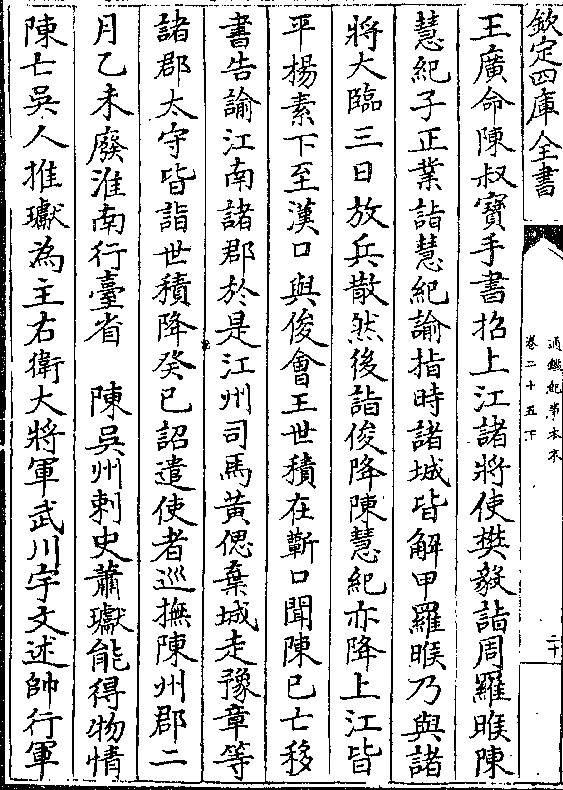 欽定四庫全書
通鑑紀事本末
卷二十五下
二十
王廣命陳叔寶手書招上江諸將使樊毅詣周羅睺陳
慧紀子正業詣慧紀諭指時諸城皆解甲羅睺乃與諸
將大臨三日放兵散然後詣俊降陳慧紀亦降上江皆
平楊素下至漢口與俊會王世積在蘄口聞陳已亡移
書告諭江南諸郡於是江州司馬黃偲棄城走豫章等
諸郡太守皆詣世積降癸巳詔遣使者巡撫陳州郡二
月乙未廢淮南行臺省　陳吳州刺史蕭瓛能得物情
陳亡吳人推瓛為主右衛大將軍武川宇文述帥行軍